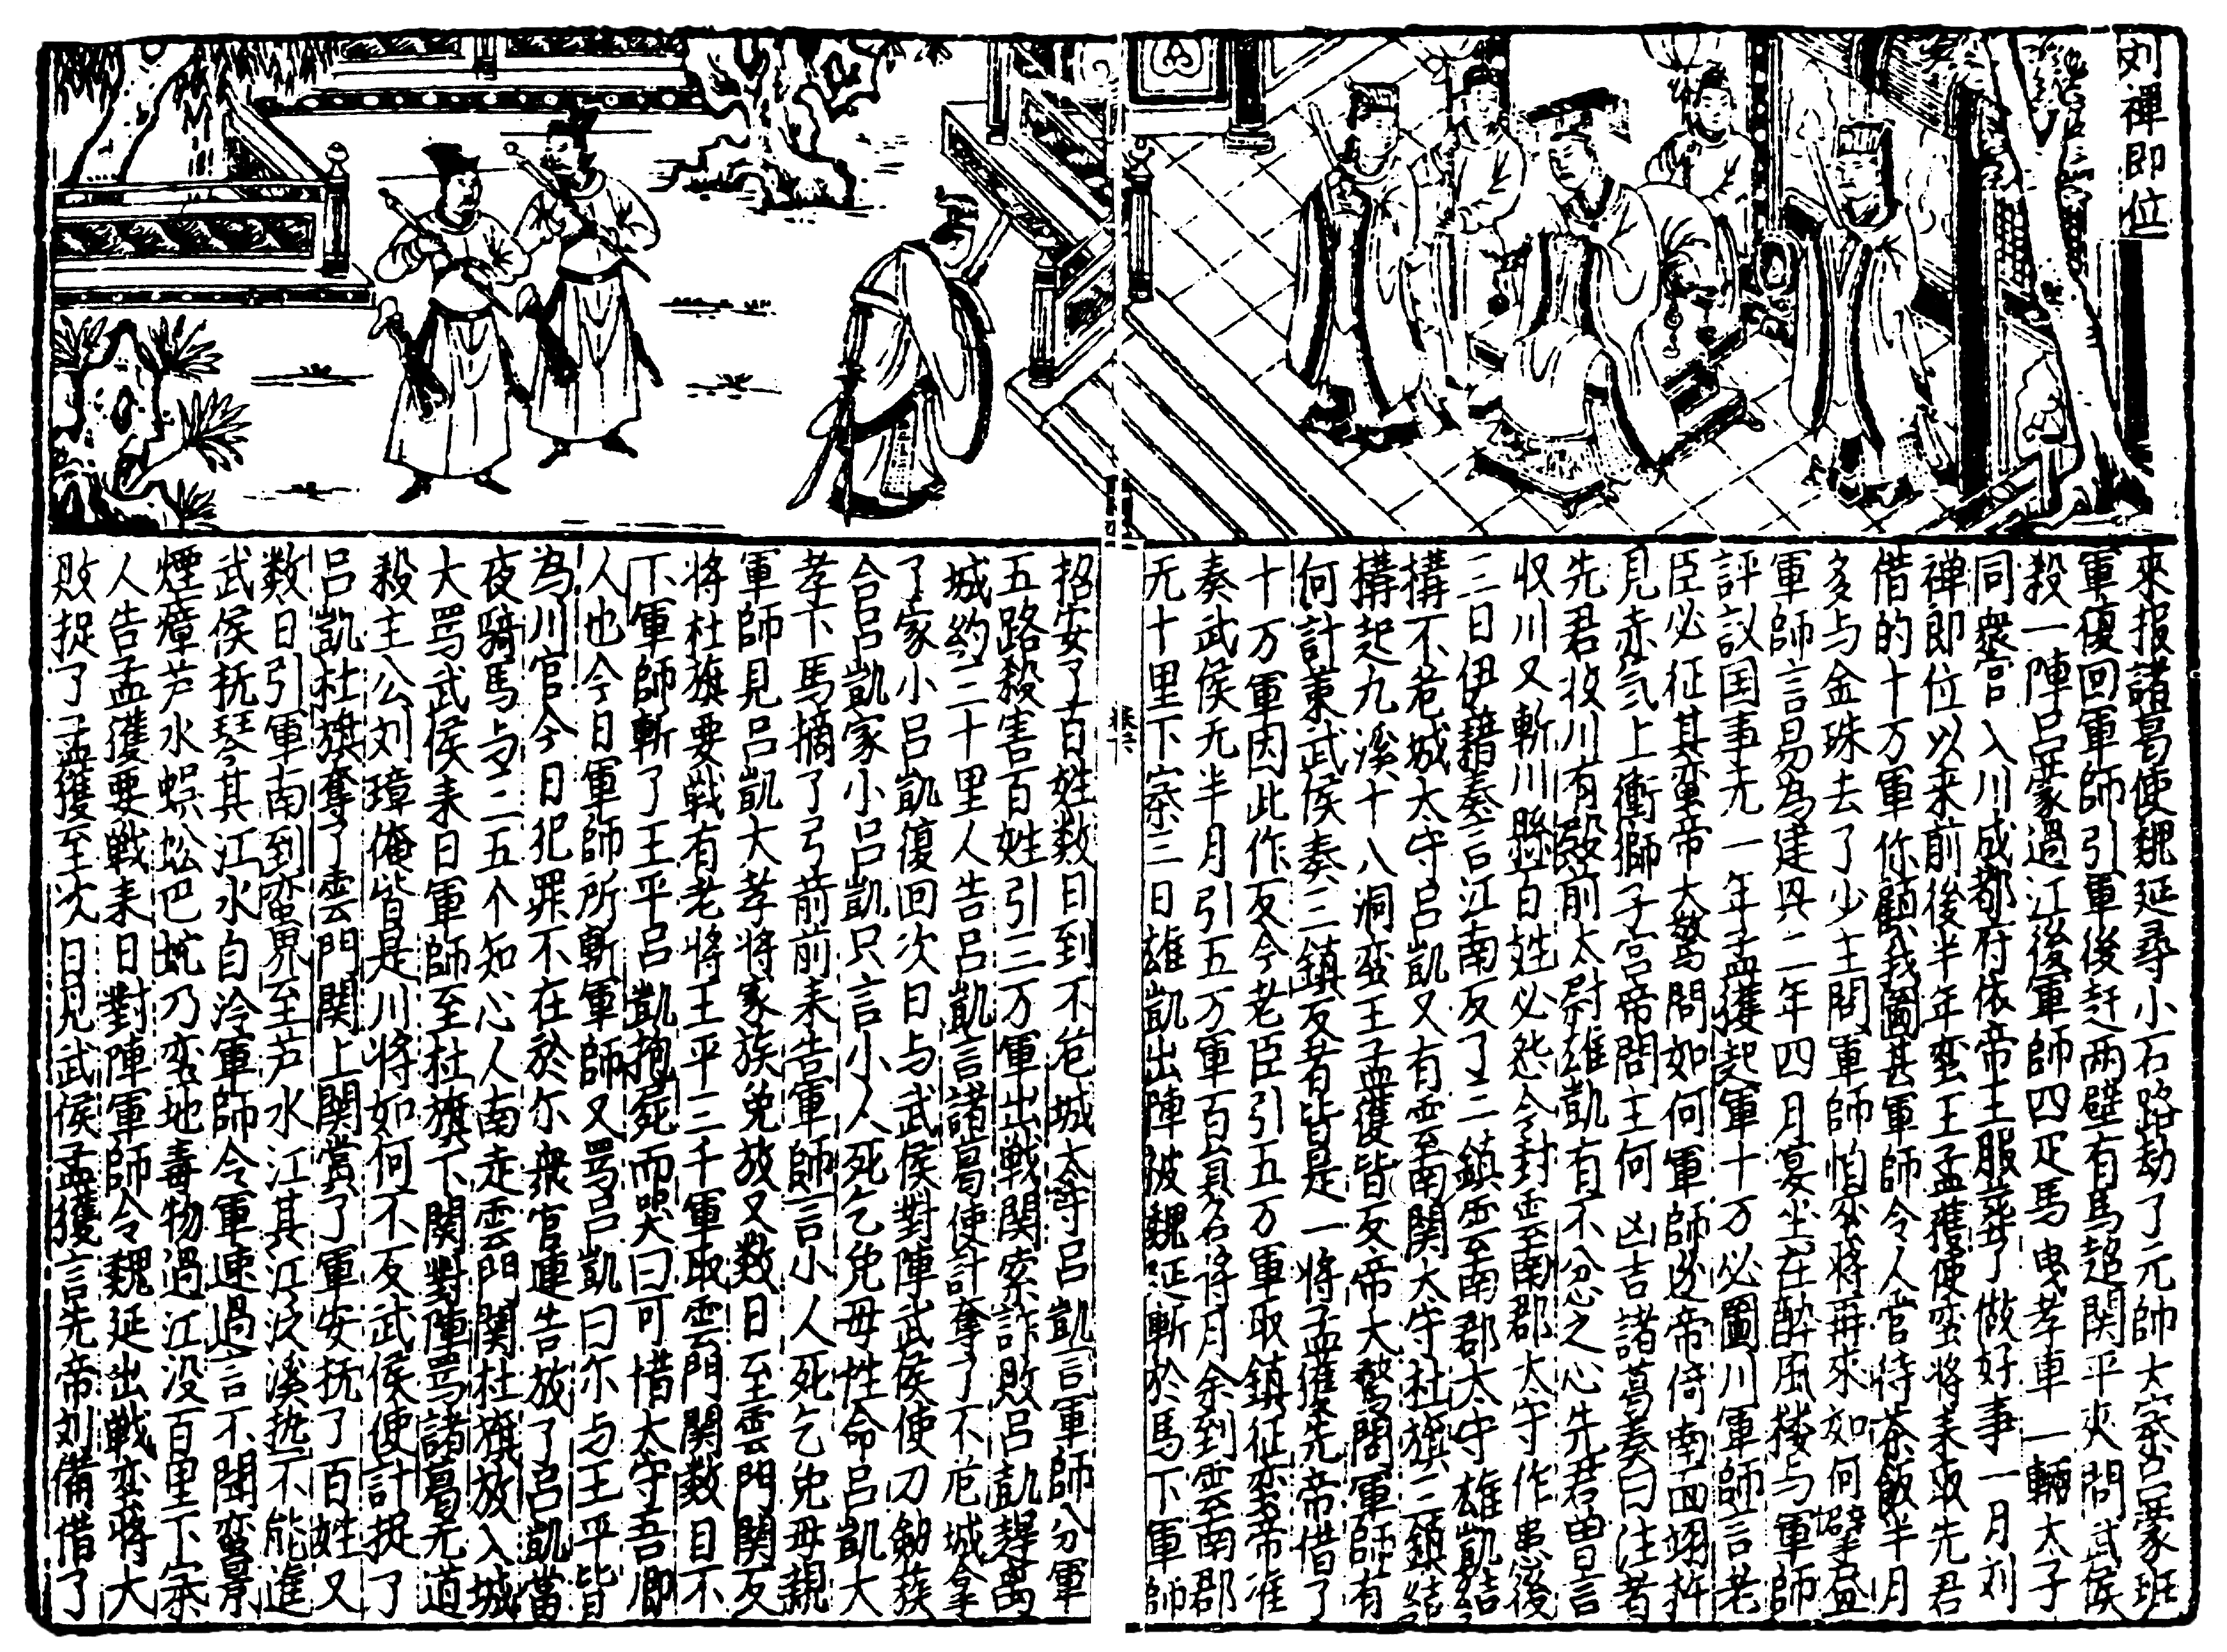 刘禪即位
來报諸葛使魏延尋小石路刼了元帥大寨吕蒙班
軍復回軍師引軍後赶两壁有馬超関平夾間武侯
殺一陣吕蒙過江後軍師四疋馬曳孝車一輛太子
同衆官入川成都府依帝王服葬了做好事一月刘
禅即位以来前後半年蛮王孟獲使蛮将来取先君
借的十万軍你顧我圖甚軍師令人官待茶飯半月
多与金珠去了少主問軍師怕蛮将再來如何
軍師言易為建兴二年四月宴坐在酔風楼与軍師
評议国事无一年孟獲起軍十万必圖川軍師言老
臣必征其蛮帝大驚問如何軍師邀帝倚南面翊扵
見赤氣上衝獅子宮帝問主何凶吉諸葛奏曰注者
先君收川有殿前太尉雄凱有不忿之心先君曽言
収川又斬川縣百姓必怨令封雲南郡太守作患後
三日伊籍奏言江南反了二鎮雲南郡太守雄凱結
構不危城太守吕凱又有雲南関太守杜旗三鎮結
構起九溪十八洞蛮王孟獲皆反帝大驚問軍師有
何計策武侯奏三鎮反者皆是一将孟獲先帝借了
十万軍因此作反今老臣引五万軍取鎮征蛮帝准
奏武侯无半月引五万軍百員名将月余到雲南郡
无十里下寨三日雄凱出陣被魏延斬於馬下軍師
招安了百姓数日到不危城太守吕凱言軍師分軍
五路殺害百姓引三万軍出戦関索詐敗吕凱趕离
城約三十里人告吕凱言諸葛使計奪了不危城拿
了家小吕凱復回次日与武侯對陣武侯使刀劒簇
合吕凱家小吕凱只言小人死乞免母性命吕凱大
孝下馬摘了弓前前来告軍師言小人死乞免母親
軍師見吕凱大孝将家族免放又数日至雲門関反
将杜旗要戦有老将王平三千軍取雲門関数日不
下軍師斬了王平吕凱抱屍而哭曰可惜太守吾卿
人也今日軍師所斬軍師又罵吕凱曰尓与王平皆
為川官今日犯罪不在於尓衆官連告放了吕凱當
夜騎馬与三五个知心人南走雲門関杜旗放入城
大罵武侯来日軍師至杜旗下関對陣罵諸葛无道
殺主公刘璋俺皆是川将如何不反武侯使計捉了
吕凱杜旗奪了雲門関上関賞了軍安抚了百姓又
数日引軍南到蛮界至芦水江其江泛溪热不能進
武侯抚琴其江水自冷軍師令軍速過言不閗蛮景
煙瘴芦水蜈蚣巴蛇乃蛮地毒物過江没百里下寨
人告孟獲要戦来日對陣軍師令魏延出戦蛮将大
敗捉了孟獲至次日見武侯孟獲言先帝刘備借了